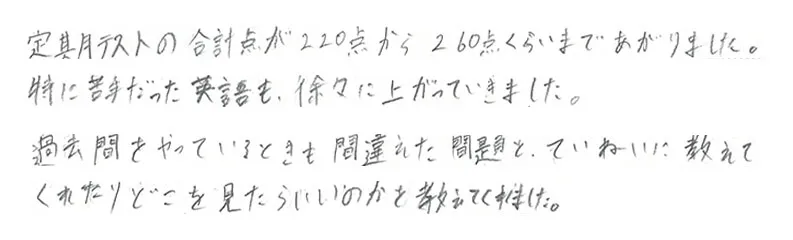 定期テストの合計点が220点から260点くらいまであがりました。
特に苦手だった英語も、徐々に上がっていきました。
過去問をやっているときも間違えた問題を、ていねいに教えて
くれたりどこを見たらいいのかを教えてくれました。